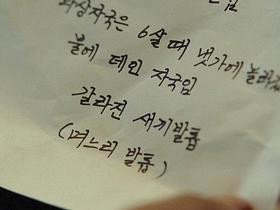 화상자국은 6살때 냇가에 놀러갔
불에 데인 자국임
갈라진 새끼발톱
(며느리 발톱)